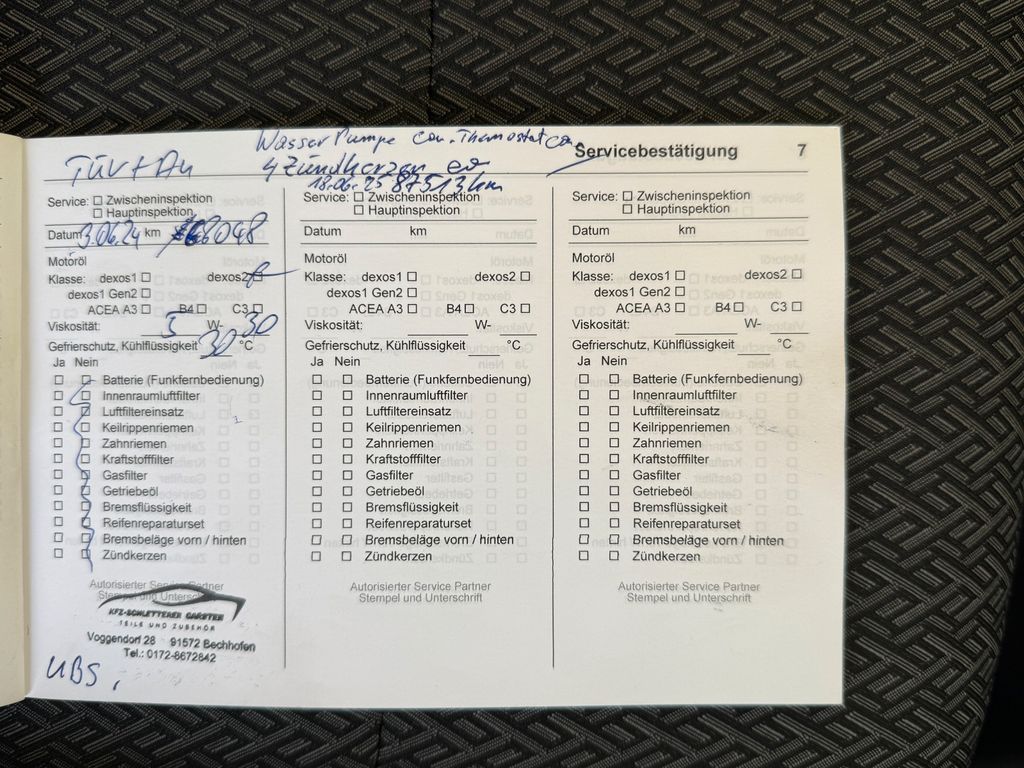 Wasser Pumpe
TÜV + Au 4 Zündkerzen Servicebestätigung 7
18.06.25 87513 km
Service: ☐ Zwischeninspektion
☐ Hauptinspektion
Datum 3.06.24 km 68048
Motoröl
Klasse: dexos1 ☐ dexos2 ☐
dexos1 Gen2 ☐
ACEA A3 ☐ B4 ☐ C3 ☐
Viskosität: 5 W- 30
Gefrierschutz, Kühlflüssigkeit 30 °C
Ja Nein
☐ ☐ Batterie (Funkfernbedienung)
☐ ☐ Innenraumluftfilter
☐ ☐ Luftfiltereinsatz
☐ ☐ Keilrippenriemen
☐ ☐ Zahnriemen
☐ ☐ Kraftstofffilter
☐ ☐ Gasfilter
☐ ☐ Getriebeöl
☐ ☐ Bremsflüssigkeit
☐ ☐ Reifenreparaturset
☐ ☐ Bremsbeläge vorn / hinten
☐ ☐ Zündkerzen
Autorisierter Service Partner
Stempel und Unterschrift
KFZ-SCHLETTERER CARSTEN
TEILE UND ZUBEHÖR
Voggendorf 28 91572 Bechhofen
Tel.: 0172-8672842
UBS
Service: ☐ Zwischeninspektion
☐ Hauptinspektion
Datum km
Motoröl
Klasse: dexos1 ☐ dexos2 ☐
dexos1 Gen2 ☐
ACEA A3 ☐ B4 ☐ C3 ☐
Viskosität: ____ W- ____
Gefrierschutz, Kühlflüssigkeit ____ °C
Ja Nein
☐ ☐ Batterie (Funkfernbedienung)
☐ ☐ Innenraumluftfilter
☐ ☐ Luftfiltereinsatz
☐ ☐ Keilrippenriemen
☐ ☐ Zahnriemen
☐ ☐ Kraftstofffilter
☐ ☐ Gasfilter
☐ ☐ Getriebeöl
☐ ☐ Bremsflüssigkeit
☐ ☐ Reifenreparaturset
☐ ☐ Bremsbeläge vorn / hinten
☐ ☐ Zündkerzen
Autorisierter Service Partner
Stempel und Unterschrift
Service: ☐ Zwischeninspektion
☐ Hauptinspektion
Datum km
Motoröl
Klasse: dexos1 ☐ dexos2 ☐
dexos1 Gen2 ☐
ACEA A3 ☐ B4 ☐ C3 ☐
Viskosität: ____ W- ____
Gefrierschutz, Kühlflüssigkeit ____ °C
Ja Nein
☐ ☐ Batterie (Funkfernbedienung)
☐ ☐ Innenraumluftfilter
☐ ☐ Luftfiltereinsatz
☐ ☐ Keilrippenriemen
☐ ☐ Zahnriemen
☐ ☐ Kraftstofffilter
☐ ☐ Gasfilter
☐ ☐ Getriebeöl
☐ ☐ Bremsflüssigkeit
☐ ☐ Reifenreparaturset
☐ ☐ Bremsbeläge vorn / hinten
☐ ☐ Zündkerzen
Autorisierter Service Partner
Stempel und Unterschrift